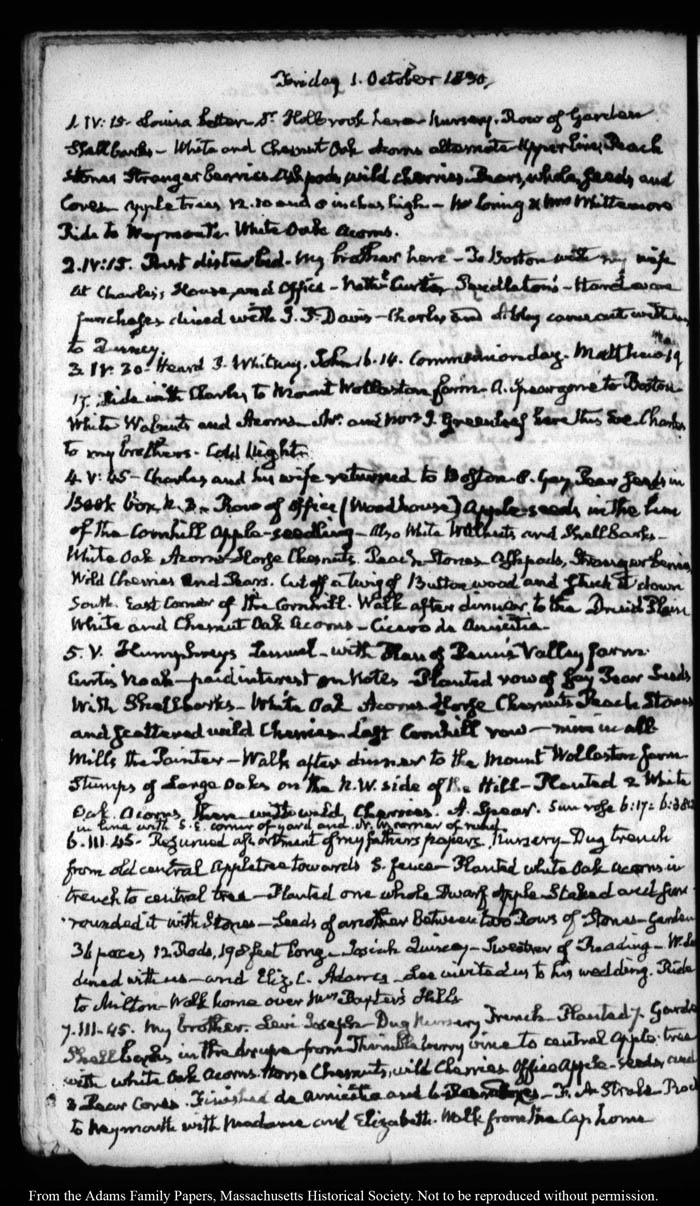 Friday 1. October 1830.
1. IV:15. Louisa better Dr. Holbrook here. Nursery. Row of Garden
Shellbarks — White and Chesnut Oak Acorns alternate Upper line, Peach
Stones Stranger berries Ashpods, wild cherries Pears, whole, seeds and
Cores. Apple trees 12. 10 and 8 inches high — Mr Loring & Mrs Whittemore
Ride to Weymouth. White Oak Acorns.
2. IV:15. Rest disturbed. My brother here — To Boston with my wife
At Charles's House, and Office — Nathl. Curtis, Pendleton's — Hardware
purchases dined with I. P. Davis — Charles and Abby came out with us
to Quincy
3. IV. 30. Heard F. Whitney. John 16. 14. Communion day. Matthew 19
17. Ride with Charles to Mount Wollaston farm — A. Spear gone to Boston
White Walnuts and Acorns — Mr. and Mrs. D. Greenleaf here this Eve. Charles
to my brothers. Cold Night.
4. V. 45 — Charles and his wife returned to Boston. 8. Gay Pear seeds in
Book box N. 3. — Row of Office (Woodhouse) Apple-seeds in the line
of the Cornhill Apple-seedling — Also White Walnuts and Shellbarks —
White Oak Acorns Horse Chesnuts. Peach-Stones Ashpods, Stranger berries
Wild Cherries and Pears. Cut off a twig of Button wood and stuck it down
South. East Corner of the Cornhill. Walk after dinner to the Druid Plain
White and Chesnut Oak Acorns — Cicero de Amicitia —
5. V. Humphreys Lemuel — with Plan of Penn's Valley farm.
Curtis Noah — paid interest on Notes — Planted row of Gay Pear Seeds
With Shellbarks — White Oak Acorns Horse Chesnuts Peach Stones
and scattered wild Cherries — Last Cornhill row — nine in all
Mills the Painter — Walk after dinner to the Mount Wollaston farm
Stumps of Large Oaks on the N.W. side of the Hill — Planted 2 White
Oak. Acorns there with wild Cherries. A. Spear. Sun rose 6:17
in line with S. E. corner of yard and
6. III. 45 — Resumed assortment of my fathers papers. Nursery — Dug trench
from old central Appletree towards S. fence — Planted white Oak Acorns in
trench to central tree — Planted one whole Dwarf Apple Staked and sur-
rounded it with Stones — Seeds of another between two Rows of Stones — Garden
36 paces 12 Rods, 198 feet long — Josiah Quincy — Sweetser of Reading — W. Lee
dined with us — and Eliz. C. Adams — Lee invited us to his wedding. Ride
to Milton — Walk home over Mrs Baxter's Hills
7. III. 45. My brother. Levi Joseph — Dug Nursery Trench — Planted 7. Garden
Shellbarks in the drupe — from Thimbleberry vine to central Apple-tree
with white Oak Acorns. Horse Chesnuts, wild Cherries Office Apple-Seeds, and
3 Pear Cores. Finished de Amicitia and — F. A. Strale
to Weymouth with Madame and Elizabeth. Walk from the Cap home
From the Adams Family Papers, Massachusetts Historical Society. Not to be reproduced without permission.